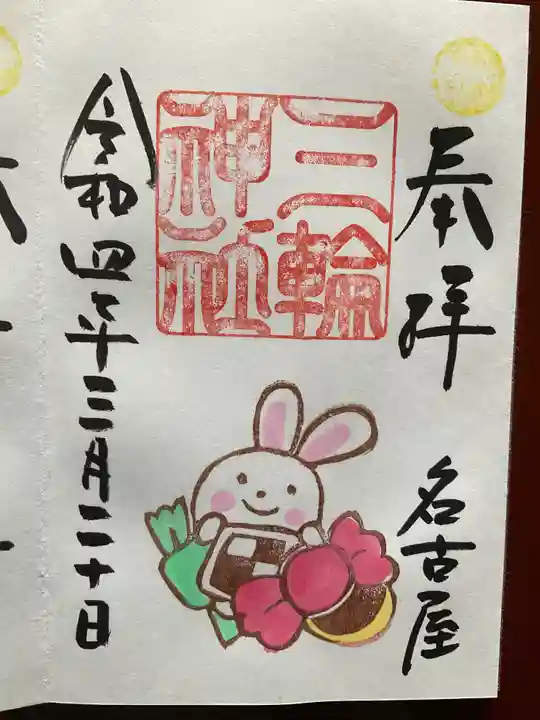 奉拝
名古屋
三輪
神社
令和四年三月二十日